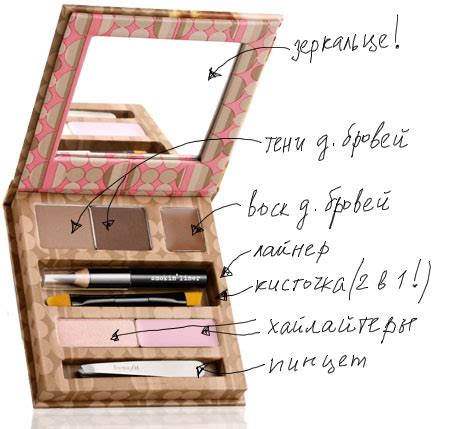 зеркальце!
тени д. бровей
воск д. бровей
лайнер
smokin' liner
кисточка (2 в 1!)
хайлайтеры
пинцет
benefit